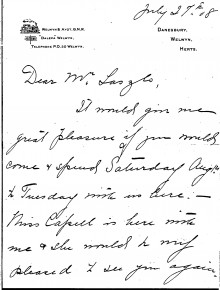 July 27th 08
WELWYN G.N.R.
DALEPA WELWYN.
TELEPHONE P.O. 20 WELWYN.
DANESBURY,
WELWYN,
HERTS.
Dear Mr Laszlo,
It would give me
great pleasure if you would
come & spend Saturday Augst
to Tuesday with us here:—
Miss Capell is here with
me & she would be
pleased to see you again.